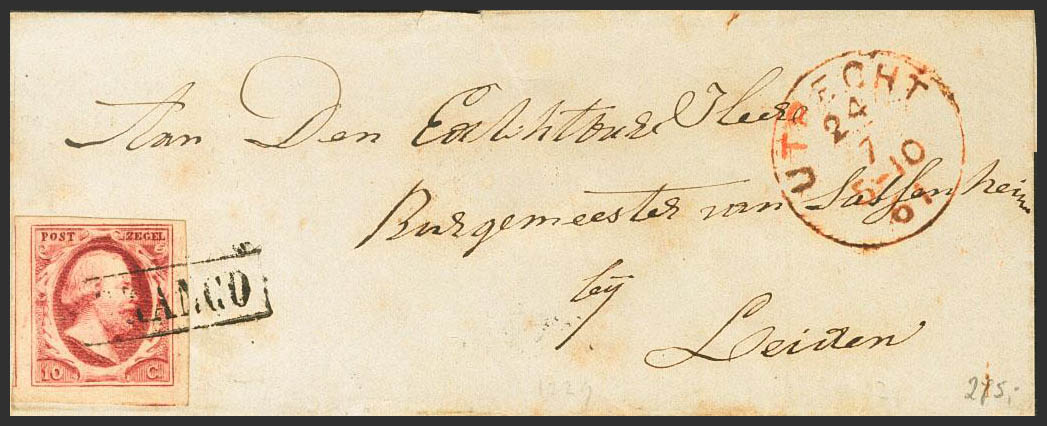 An Den Edel Achtbare Heere
Burgemeester van Sassenheim
bij
Leiden
UTRECHT
24
7
8-10
61
POST ZEGEL
10 C
FRANCO